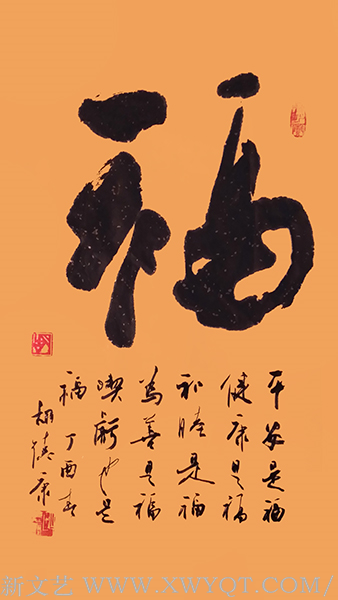 福
平安是福
健康是福
和睦是福
為善是福
喫虧也是
福 丁酉春
胡德康
新文艺 WWW.XWYQT.COM/